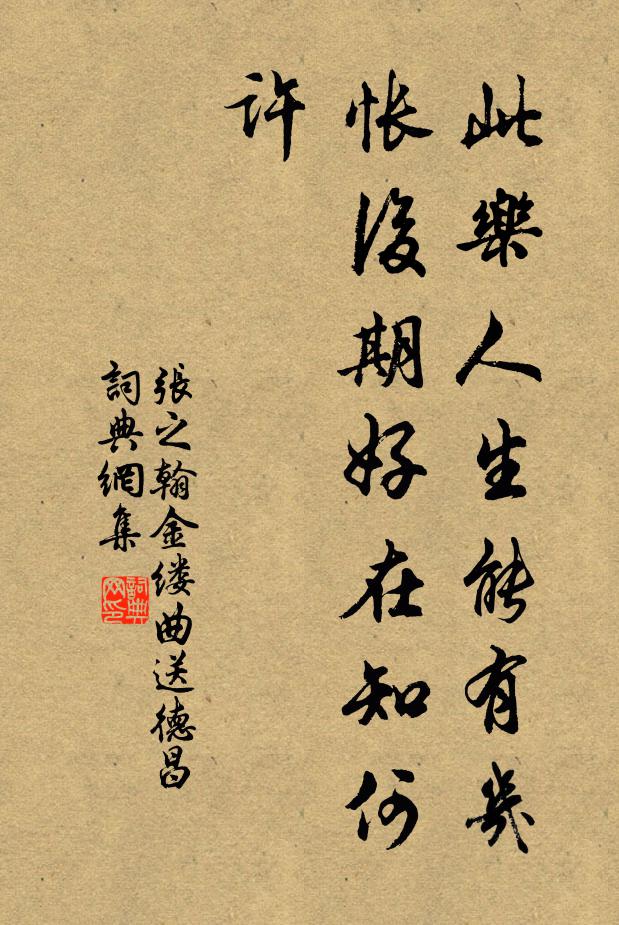 此樂人生能有幾
悵後期好在知何
許
張之翰金缕曲送德昌
詞典網集
詞典网印